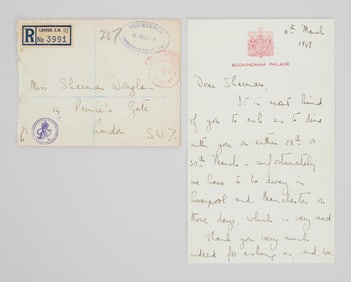 LONDON, S.W. 32
R
No 3991
207
REGISTERED
Miss Sharman Douglas
14
Prince's Gate
London
S.W.7.
11th March
1949.
BUCKINGHAM PALACE
Dear Sharman,
It is most kind
of you to ask us to dine
with you on either 28th or
30th March - unfortunately
we have to be away in
Liverpool and Manchester on
those days, which is very sad.
Thank you very much
indeed for asking us, and we